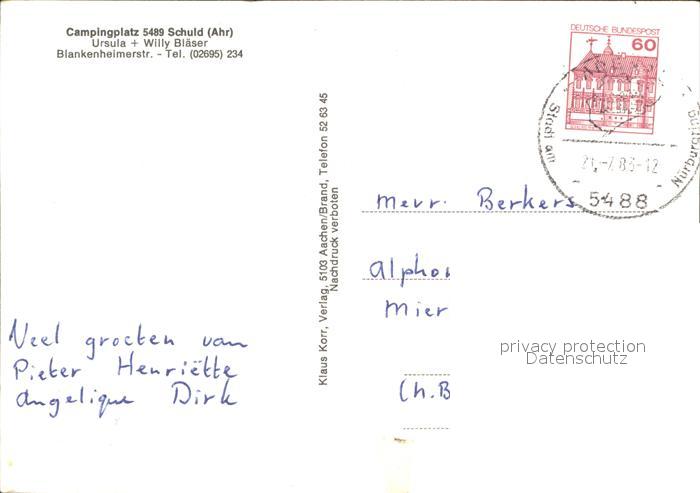 Campingplatz 5489 Schuld (Ahr)
Ursula + Willy Bläser
Blankenheimerstr. - Tel. (02695) 234
DEUTSCHE BUNDESPOST
60
Stadt am
Nürburg
5488
Klaus Korr, Verlag, 5103 Aachen/Brand, Telefon 52 63 45
Nachdruck verboten
Mevr. Berkers
Alpho
Mier
Ch. B
privacy protection
Datenschutz
Veel groeten van
Pieter Henriëtte
Angelique Dirk